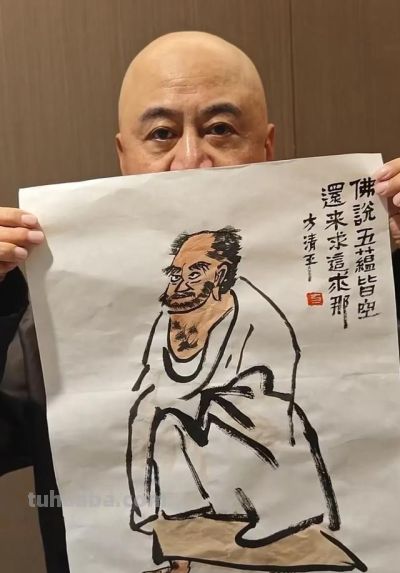 佛說五蘊皆空
還来求這求那
方清平